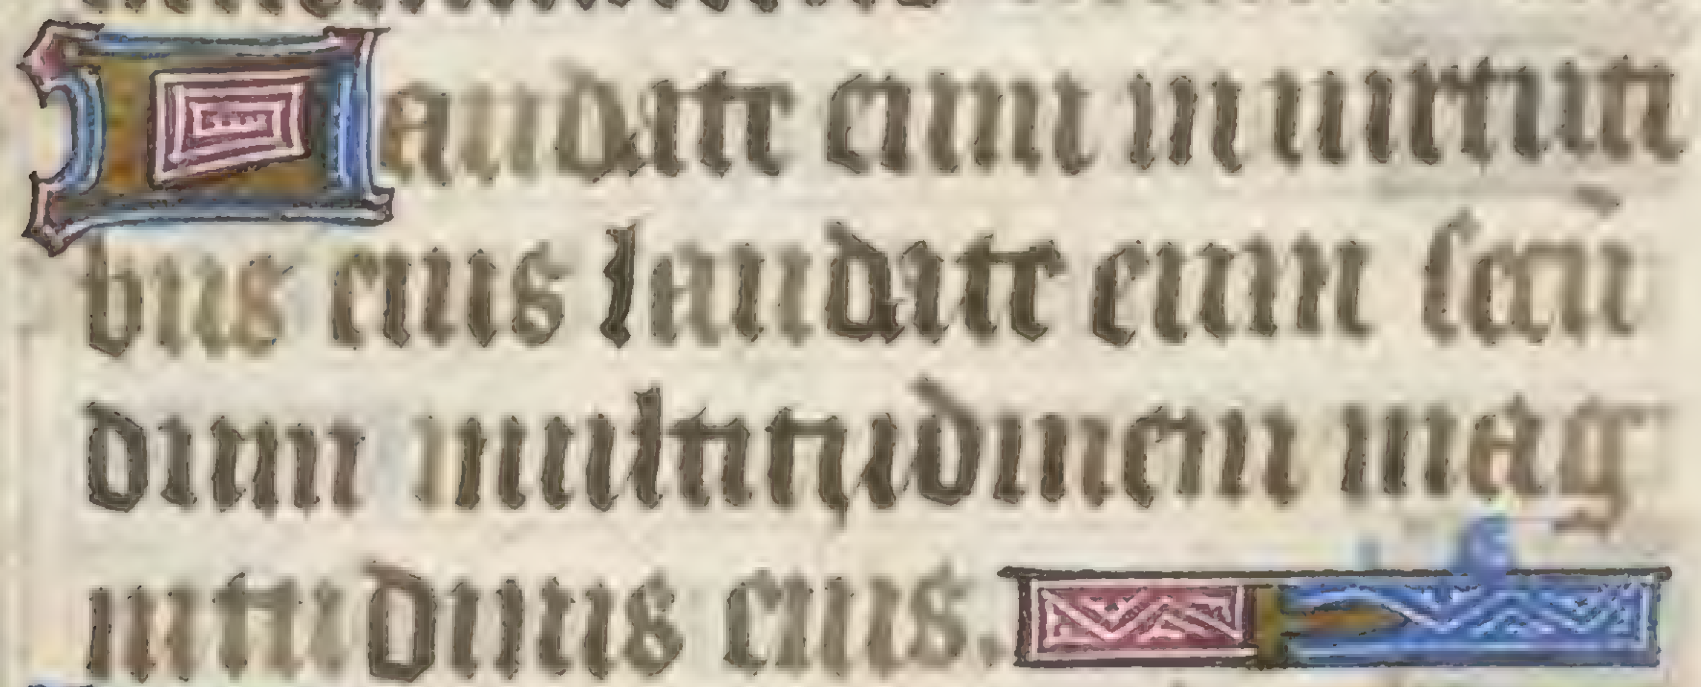 Laudate eum in uirtuti
bus eius laudate eum secū
dum multitudinem mag
nitudinis eius.